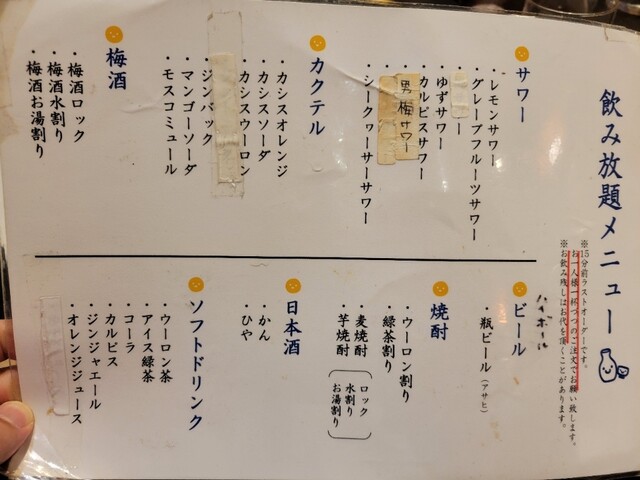 飲み放題メニュー
※15分前ラストオーダーです。
お一人様一杯づつのご注文でお願い致します。
※お飲み残しはお代を頂くことがあります。
サワー
・レモンサワー
・グレープフルーツサワー
ー
・ゆずサワー
・カルピスサワー
男梅サワー
・シークヮーサーサワー
カクテル
・カシスオレンジ
・カシスソーダ
・カシスウーロン
・ジンバック
・マンゴーソーダ
・モスコミュール
梅酒
・梅酒ロック
・梅酒水割り
・梅酒お湯割り
ハイボール
ビール
・瓶ビール（アサヒ）
焼酎
・ウーロン割り
・緑茶割り
・麦焼酎
・芋焼酎
ロック
水割り
お湯割り
日本酒
・かん
・ひや
ソフトドリンク
・ウーロン茶
・アイス緑茶
・コーラ
・カルピス
・ジンジャエール
・オレンジジュース